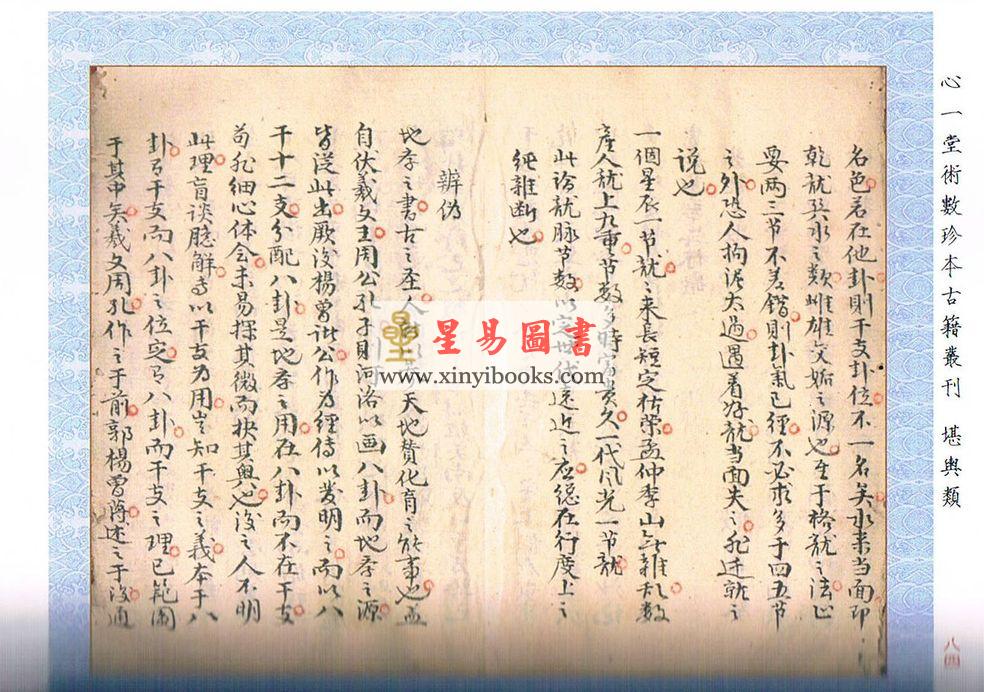 心一堂術數珍本古籍叢刊 堪輿類
名色若在他卦則干支卦位不一名矣水来当面即
乾龍巽水之類雌雄交姤之源也至于格龍之法止
要两三节不差錯則卦氣已經不必求多于四五节
之外恐人拘泥太過遇着好龍当面失之非迁就之
说也
一個星辰一节龍之来長短定枯荣孟仲季山无雜乱数
產人龍上九重节数多時富贵久一代风光一节龍
此論龍脉节数以定世代遠近之应總在行度上之
纯雜断也
辨伪
地孝之書古之圣人天地贊化育之能事也盖
自伏羲文王周公孔子則河洛以画八卦而地孝之源
皆從此出厥後楊曾诸公作为經傳以发明之而以八
干十二支分配八卦是地孝之用在八卦而不在干支
苟非细心体会未易探其微而抉其奥也後之人不明
此理盲谈臆解专以干支为用岂知干支之義本于八
卦有干支而八卦之位定有八卦而干支之理已範圍
于其中矣羲文周孔作之于前郭楊曾傳述之于後通
星易圖書
www.xinyibooks.com
八四